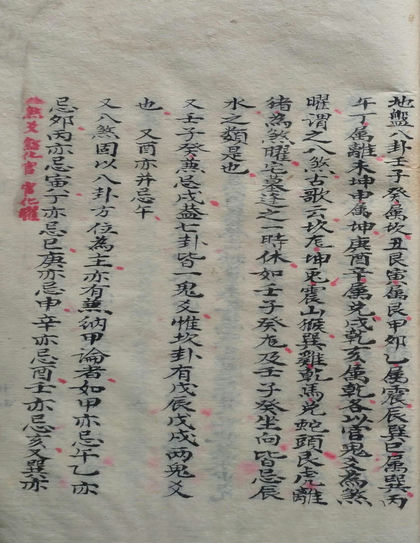 地盤八卦壬子癸属坎丑艮寅属艮甲卯乙属震辰巽巳属巽丙
午丁属離未坤申属坤庚酉辛属兌戌乾亥属乾各以官鬼爻為煞
曜謂之八煞古歌云坎龙坤兎震山猴巽雞乾馬兌蛇頭艮虎離
猪為煞曜宅墓逢之一時休如壬子癸龙及壬子癸坐向皆忌辰
水之類是也
又壬子癸兼忌戌益七卦皆一鬼爻惟坎卦有戊辰戊戌两鬼爻
也 又酉亦并忌午
又八煞固以八卦方位為主亦有兼納甲論者如甲亦忌午乙亦
忌卯丙亦忌寅丁亦忌巳庚亦忌申辛亦忌酉壬亦忌亥又巽亦
煞爻 化官 官化